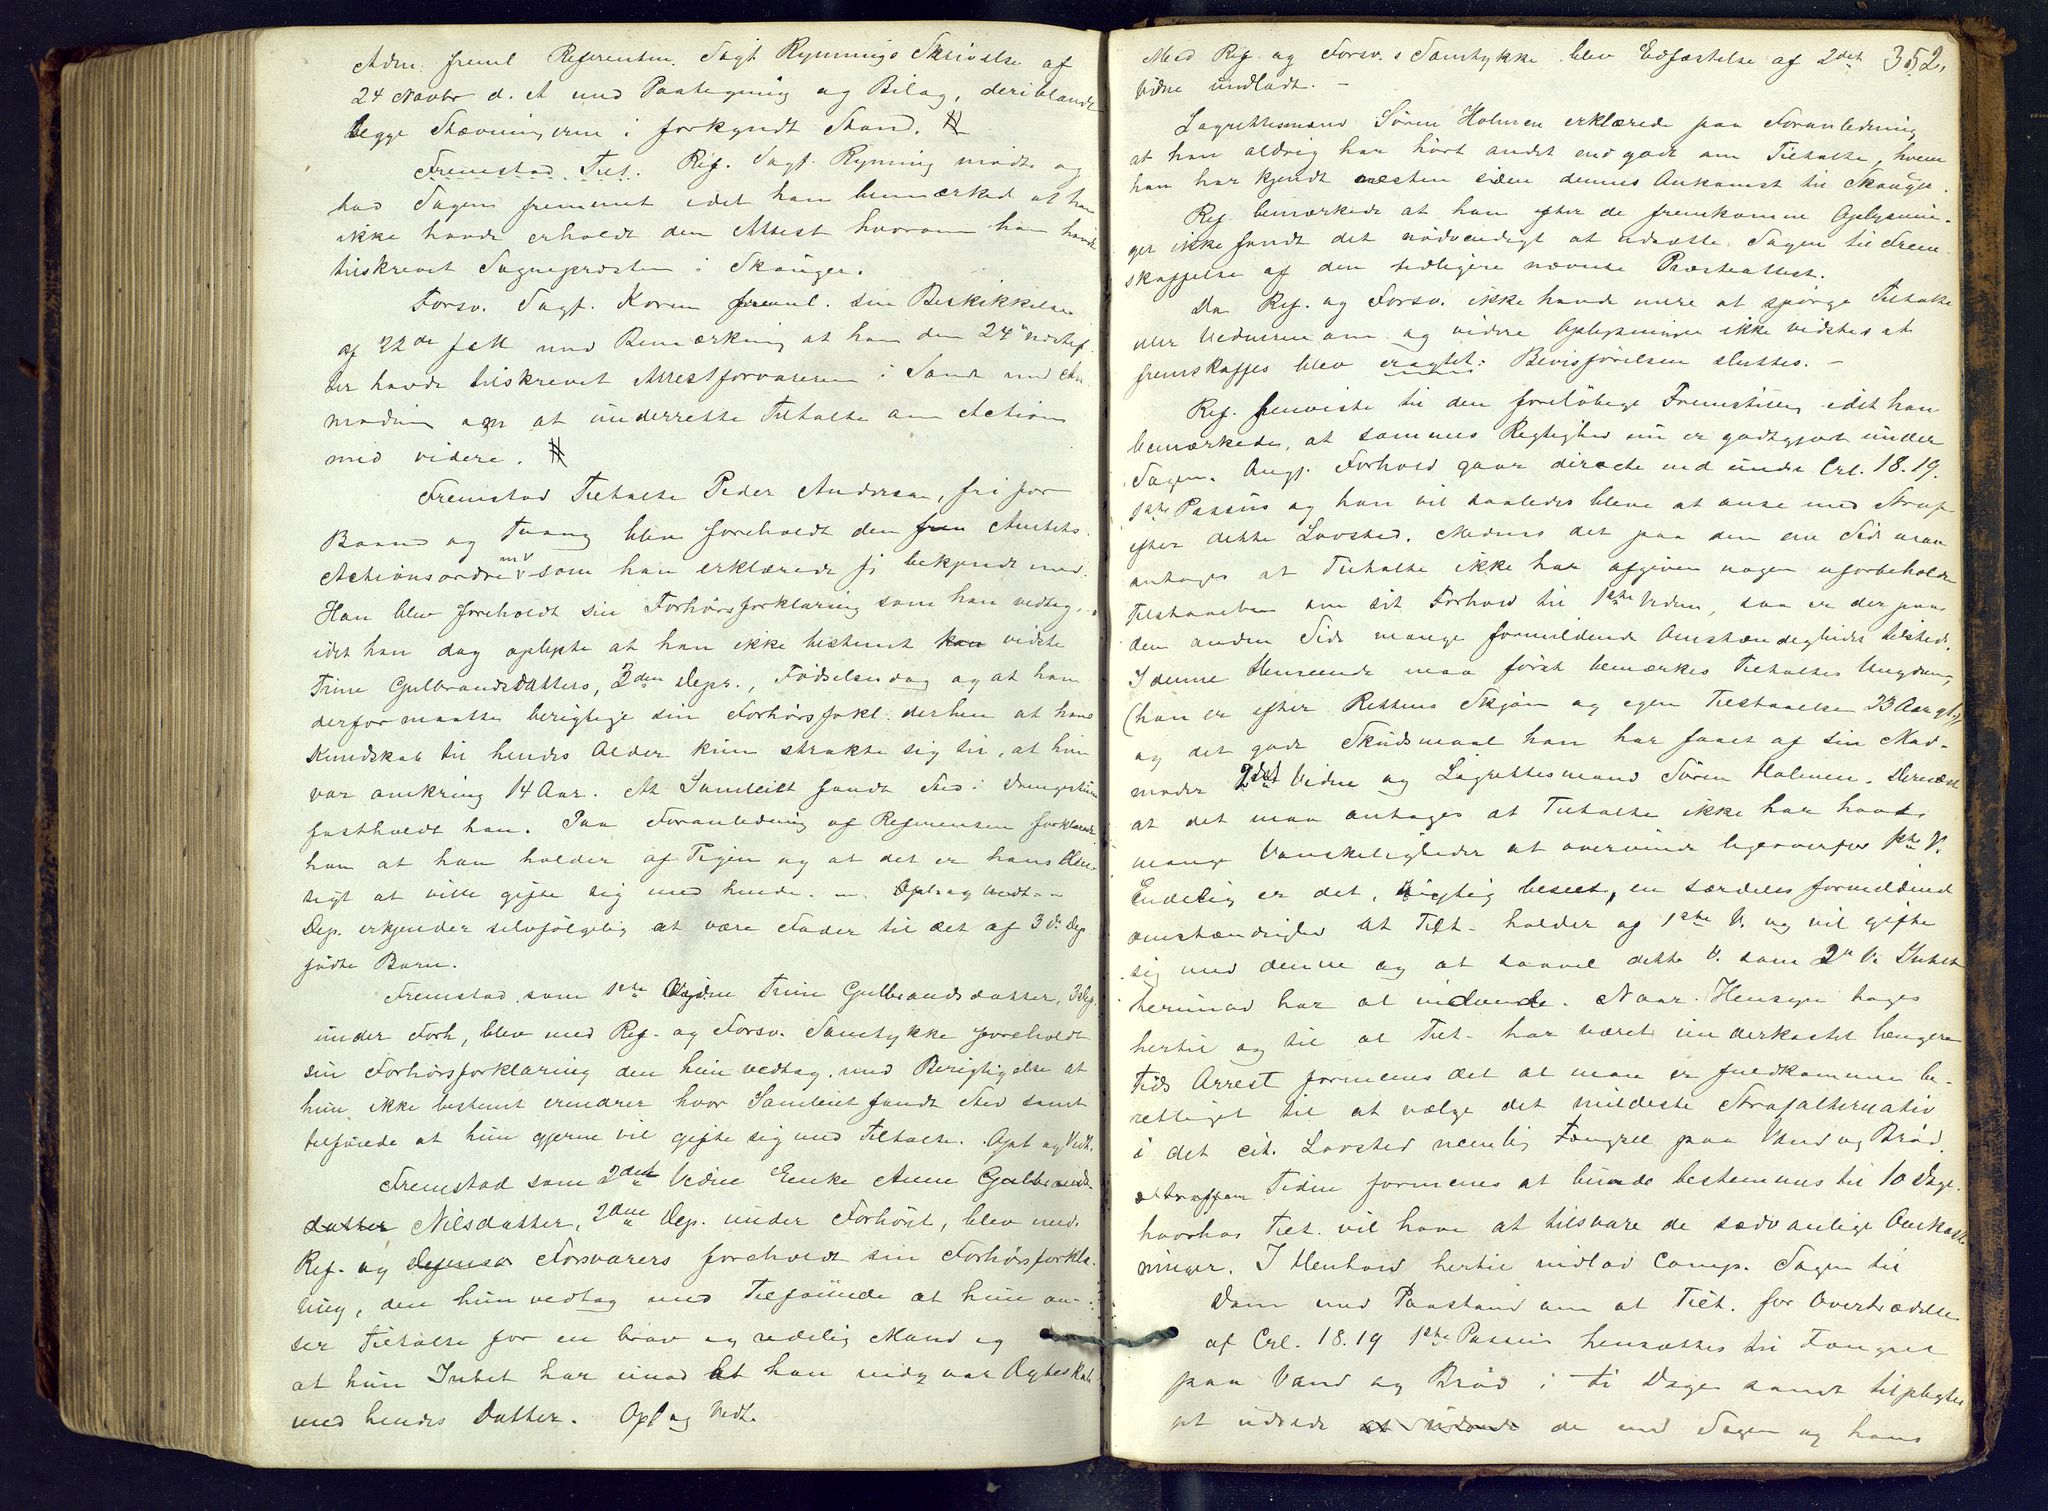 Adm. freml Referenten Sagf Rynnings Skrivelse af
24 Novbr d. A med Paategning og Bilag, deriblandt
begge Stævningerne i forkyndt Stand. #
Fremstod Tilt. Ref. Sagf. Rynning mødte og
bad Sagen fremmet idet han bemærked at han
ikke havde erholdt den Attest hvorom han havde
tilskrevet Sognepræsten i Skauger.
Forsv. Sagf. Koren freml. sin Beskikkelse
af 22de ds. M med Bemærkning at han den 24de næstef
ter havde tilskrevet Arrestforvareren i Sande med An
modning om at underrette Tiltalte om Action
med videre. #
Fremstod Tiltalte Peder Andersen, fri for
Baand og Tvang blev foreholdt den fren Amtets
Actionsordre mv som han erklærede sig bekjendt med.
Han blev foreholdt sin Forhørsforklaring som han vedtog,
idet han dog oplyste at han ikke bestemt kan vidste
Trine Gulbrandsdatters, 3den Depr., Fødselsdag og at han
derfor maatte berigtige sin Forhørsfokl. derhen at hans
Kundskab til hendes Alder kun strakte sig til, at hun
var omkring 14 Aar. At Samleiet fandt Sted i
fastholdt han. Paa Foranledning af Referenten forklarede
han at han holder af Pigen og at det er hans Hen-
sigt at ville gifte sig med hende. — Opl. og Vedt. -
Dep. erkjender selvfølgelig at være Fader til det af 3de Dep.
fødte Barn.
Fremstod som 1ste Vidne Trine Gulbrandsdatter, 3 Dep.
under Forh, blev med Ref. og Forsv. Samtykke foreholdt
sin Forhørsforklaring den hun vedtog med Berigtigelse at
hun ikke bestemt erindrer hvor Samleiet fandt Sted samt
tilføiede at hun gjerne vil gifte sig med Tiltalte. Opl og Vedt.
Fremstod som 2det Vidne Enke Anne Gulbrands-
datter Nilsdatter, 2den Dep. under Forhøret, blev med
Ref. og Defensor Forsvarers foreholdt sin Forhørsforkla-
ring, den hun vedtog med Tilføiende at hun an-
ser Tiltalte for en brav og redelig Mand og
at hun Intet har imod at han indgaar Ægteskab
med hendes Datter. Opl og Vedt.
352.
Med Ref. og Forsv.s Samtykke blev Edfæstelse af 2det
Vidne undladt. —
Lagrettesmand Søren Holmen erklærede paa Foranledning
at han aldrig har hørt andet end godt om Tiltalte, hvem
han har kjendt næsten siden dennes Ankomst til Skauger.
Ref. bemærkede at han efter de fremkomne Oplysnin-
ger ikke fandt det nødvendigt at udsætte Sagen til Frem-
skaffelse af den tidligere nævnte Præsteattest.
Da Ref. og Forsv. ikke havde mere at spørge Tiltalte
eller Vidnerne om og videre Oplysninger ikke vidstes at
fremskaffes blev eragtet: Bevisførelsen sluttes. —
Ref. henviste til den foreløbige Fremstilling idet han
bemærkede, at sammes Rigtighed nu er godtgjort under
Sagen. Angj. Forhold gaar directe ind under Crl. 18.19.
1ste Passus og han vil saaledes blive at anse med Straf
efter dette Lovsted. Medens det paa den ene Side maa
antages at Tiltalte ikke har afgiven nogen uforbeholden
Tilstaaelse om sit Forhold til 1ste Vidne, saa er der paa
den anden Side mange formildende Omstændigheder tilstede.
I denne Henseende maa først bemærkes Tiltaltes Ungdom,
(han er efter Rettens Skjøn og egen Tilstaaelse 23 Aar gl.)
og det gode Skudsmaal han har faaet af sin Mad-
moder 2det Vidne og Lagrettesmand Søren Holmen. Dernæst
at det maa antages at Tiltalte ikke har havt
mange Vanskeligheder at overvinde ligeoverfor 1ste V.
Endelig er det, rigtig beseet, en særdeles formildende
omstændighed at Tilt. holder af 1ste V. og vil gifte
sig med denne og at saavel dette V. som 2det V. Intet
herimod har at indvende. Naar Hensyn tages
hertil og til at Tilt. har været underkastet længere
Tids Arrest formenes det at man er fuldkommen be-
rettiget til at vælge det mildeste Strafalternativ
i det cit. Lovsted nemlig Fængsel paa Vand og Brød.
Tiden formenes at burde bestemmes til 10 Dage.
hvorhos Tilt. vil have at tilsvare de sædvanlige Omkost-
ninger. I Henhold hertil indlod Comp. Sagen til
Dom med Paastand om at Tilt. for Overtrædelse
af Crl. 18.19 1ste Passus hensættes til Fængsel
paa Vand og Brød i ti Dage samt tilpligtes
at udrede at udrede de med Sagen og hans